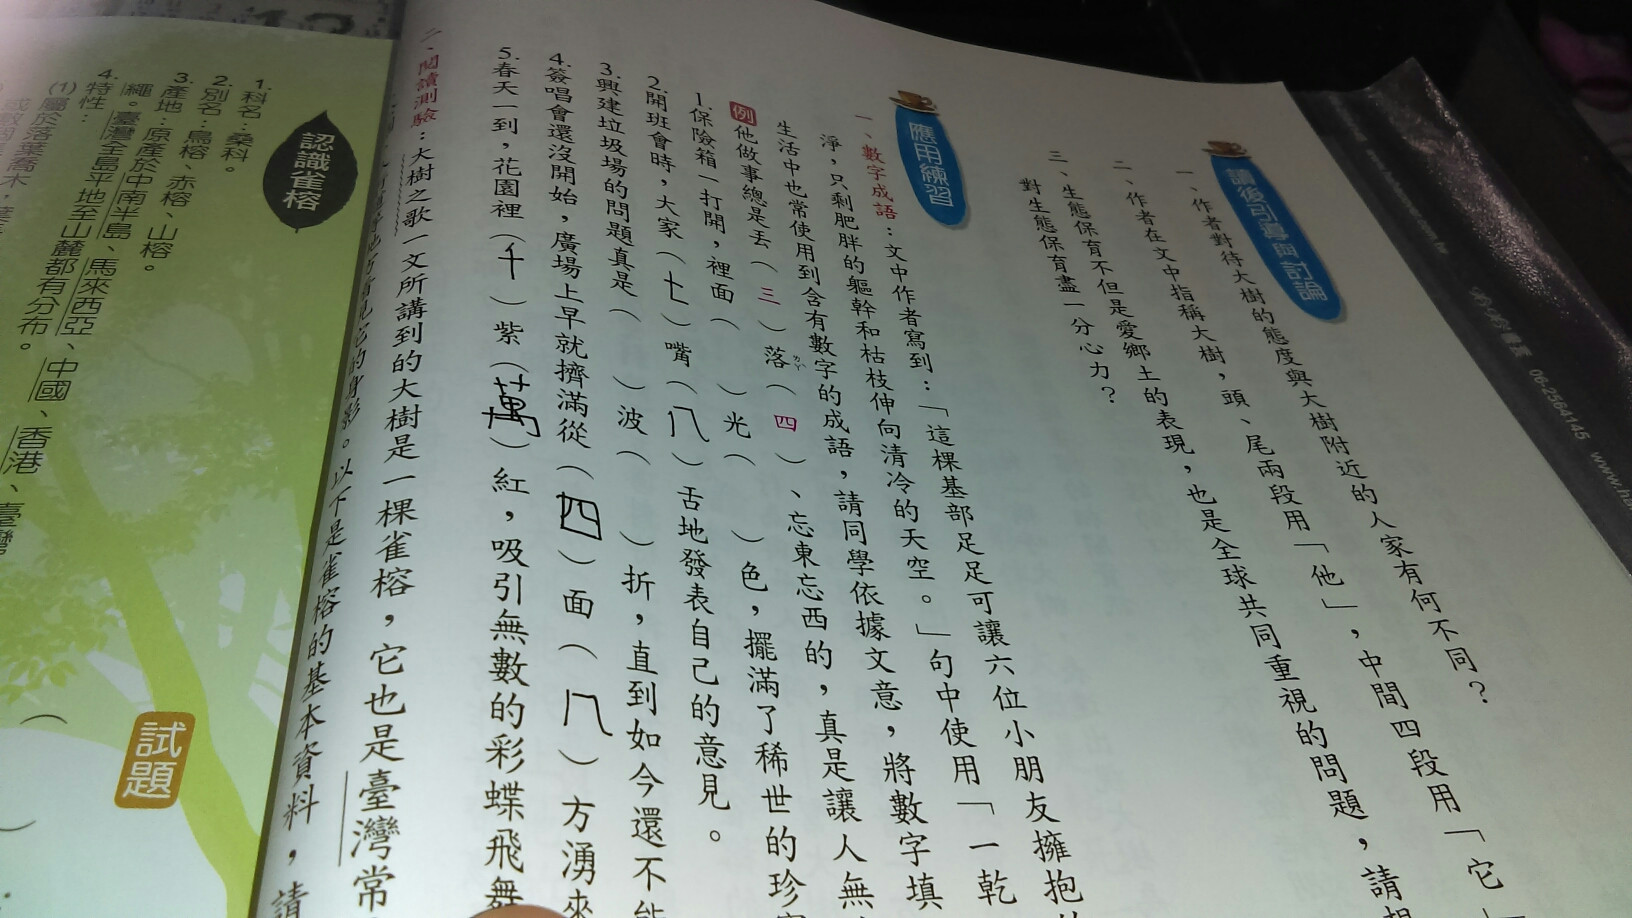 讀後引導與討論
一、作者對待大樹的態度與大樹附近的人家有何不同？
二、作者在文中指稱大樹，頭、尾兩段用「他」，中間四段用「它」
三、生態保育不但是愛鄉土的表現，也是全球共同重視的問題，請
對生態保育盡一分心力？
應用練習
一、數字成語：文中作者寫到：「這棵基部足足可讓六位小朋友擁抱
淨，只剩肥胖的軀幹和枯枝伸向清冷的天空。」句中使用「一乾
生活中也常使用到含有數字的成語，請同學依據文意，將數字填
例 他做事總是丟（三）落（四）、忘東忘西的，真是讓人無
1.保險箱一打開，裡面（ ）光（ ）色，擺滿了稀世的珍
2.開會時，大家（七）嘴（八）舌地發表自己的意見。
3.興建垃圾場的問題真是（ ）波（ ）折，直到如今還不能
4.簽唱會還沒開始，廣場上早就擠滿從（四）面（八）方湧來
5.春天一到，花園裡（千）紫（萬）紅，吸引無數的彩蝶飛舞
二、閱讀測驗：大樹之歌一文所講到的大樹是一棵雀榕，它也是臺灣常
它的身影。以下是雀榕的基本資料，請
認識雀榕
1.科名：桑科。
2.別名：鳥榕、赤榕、山榕。
3.產地：原產於中南半島、馬來西亞、中國、香港、臺灣
繩。臺灣全島平地至山麓都有分布。
4.特性：
(1)屬於落葉喬木，
試題
06-2564145 www.h